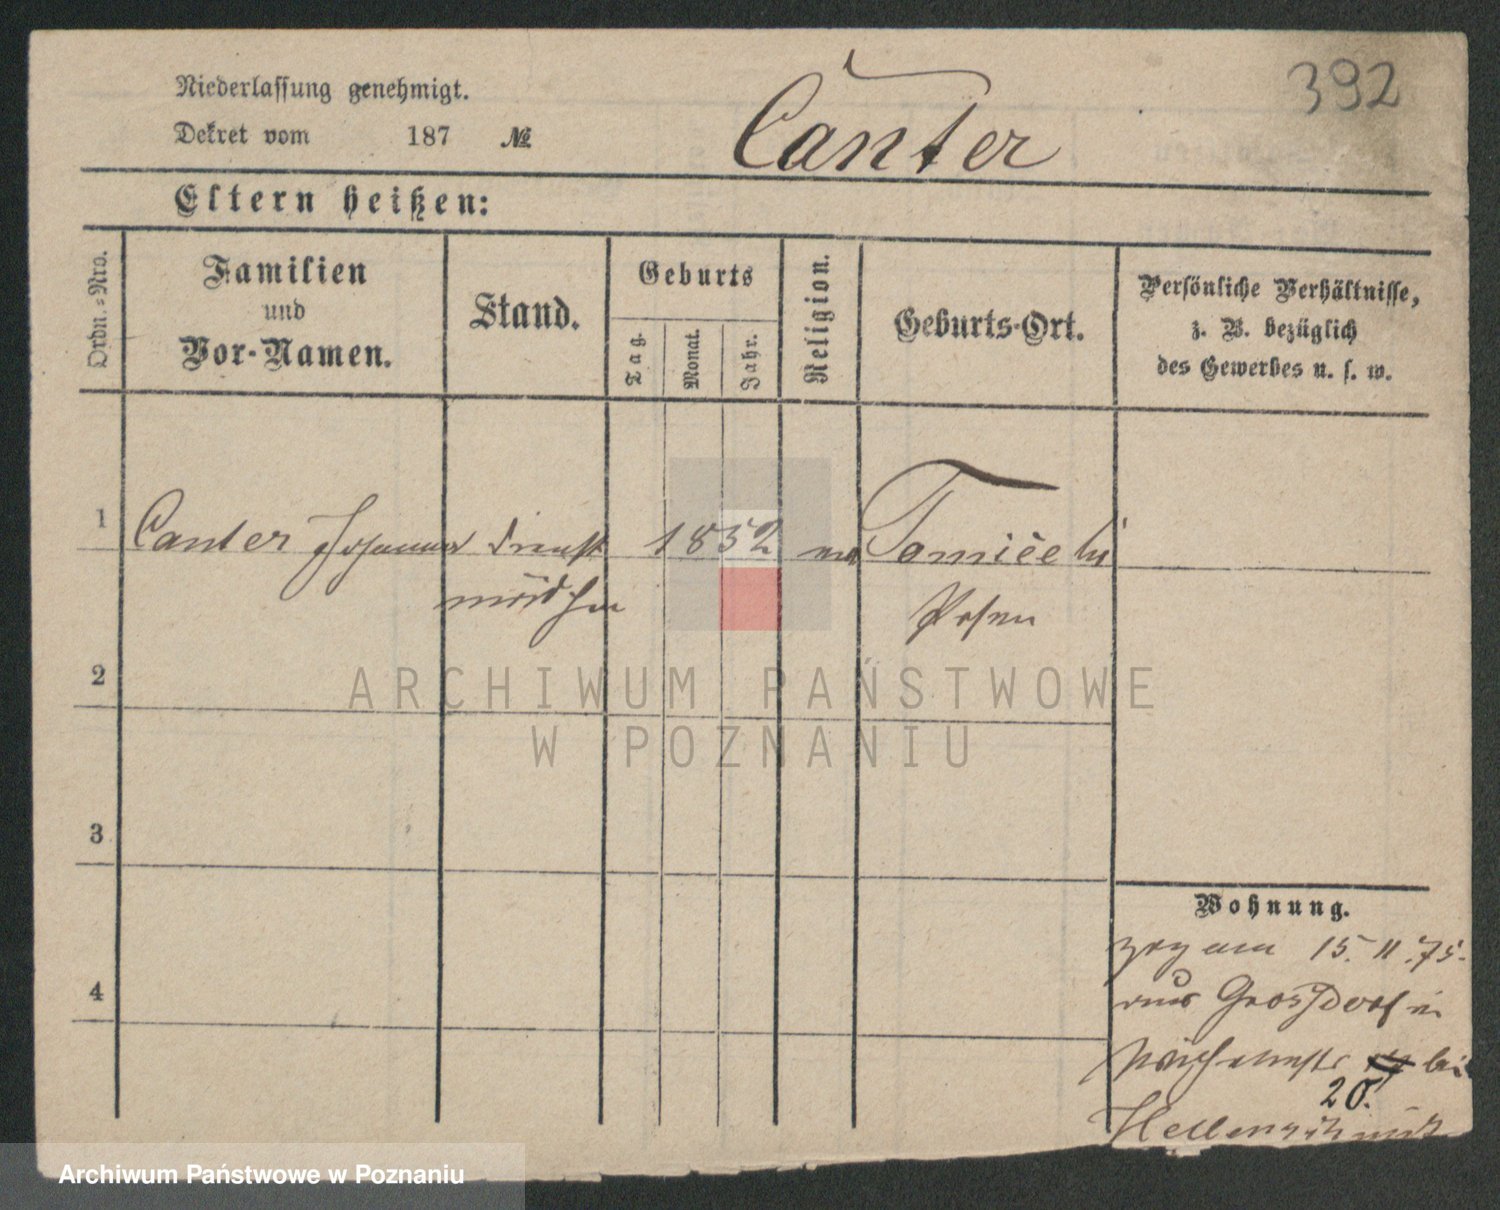 392
Niederlassung genehmigt.
Dekret vom 187 №
Canter
Eltern heißen:
Ordn.-Nro.
Familien
und
Vor-Namen.
Stand.
Geburts
Tag.
Monat.
Jahr.
Religion.
Geburts-Ort.
Persönliche Verhältnisse,
z. B. bezüglich
des Gewerbes u. s. w.
1 Canter Johanna Dienst 1852
mädchen Posen
2
3
4
Wohnung.
zog am 15. 11. 75.
aus Grossdorf in
bei
20.
ARCHIWUM PAŃSTWOWE
W POZNANIU
Archiwum Państwowe w Poznaniu